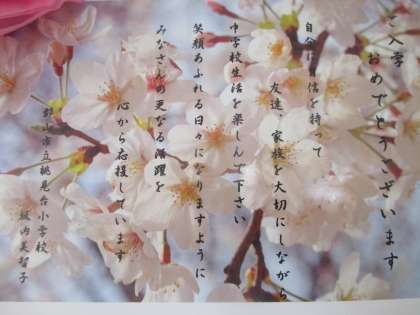 ご入学　おめでとうございます
自分に自信を持って
友達、家族を大切にしながら
中学校生活を楽しんで下さい
笑顔あふれる日々になりますように
みなさんの更なる活躍を
心から応援しています
郡山市立桃見台小学校
坂内美智子